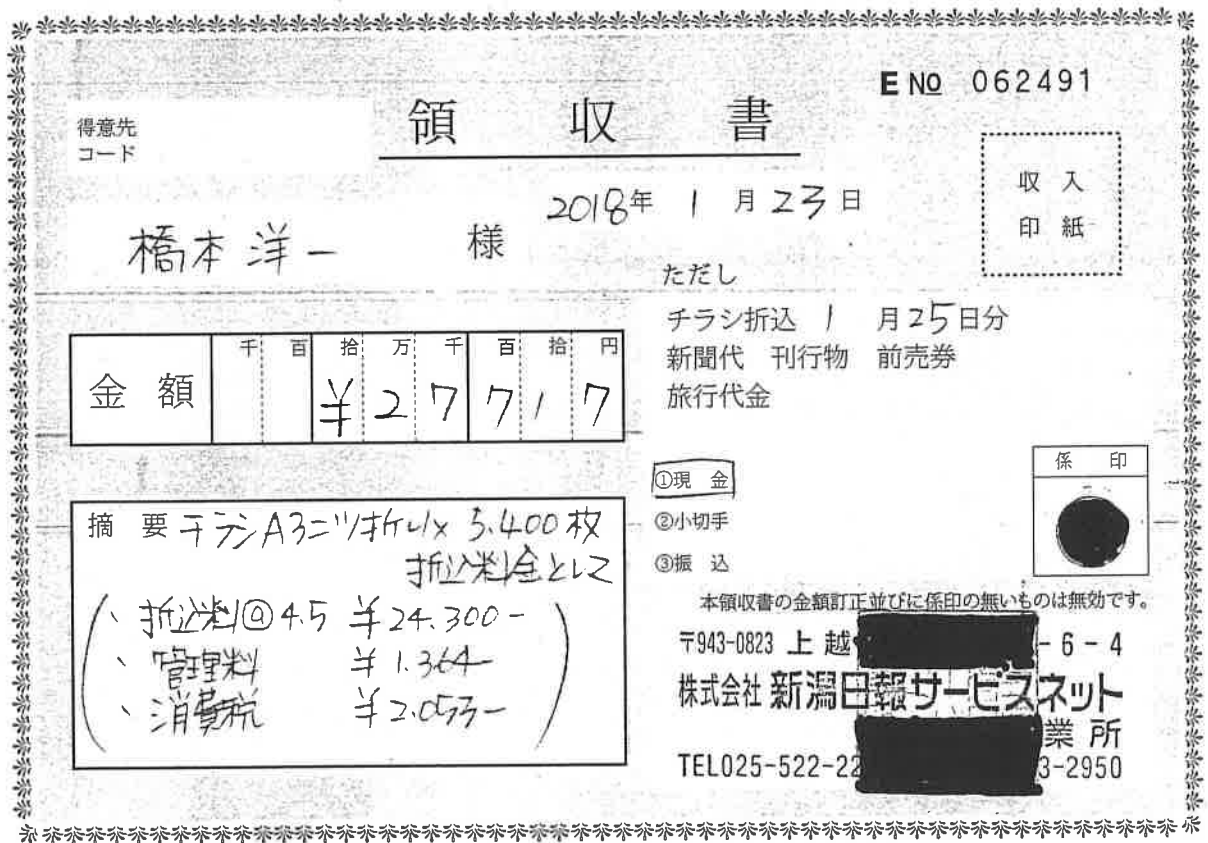 E No 062491
得意先
コード
領 収 書
収 入
印 紙
2018年 1 月 23 日
橋本 洋一 様
ただし
チラシ折込 1 月25日分
新聞代 刊行物 前売券
旅行代金
千 百 拾 万 千 百 拾 円
金 額 ¥ 2 7 7 1 7
①現 金
②小切手
③振 込
係 印
摘 要 チラシA3二ツ折り× 5.400枚
折込料金として
、折込料@4.5 ¥24.300-
、管理料 ¥1.364-
、消費税 ¥2.053-
本領収書の金額訂正並びに係印の無いものは無効です。
〒943-0823 上越 - 6 - 4
株式会社 新潟日報サービスネット
業所
TEL025-522-22 3-2950